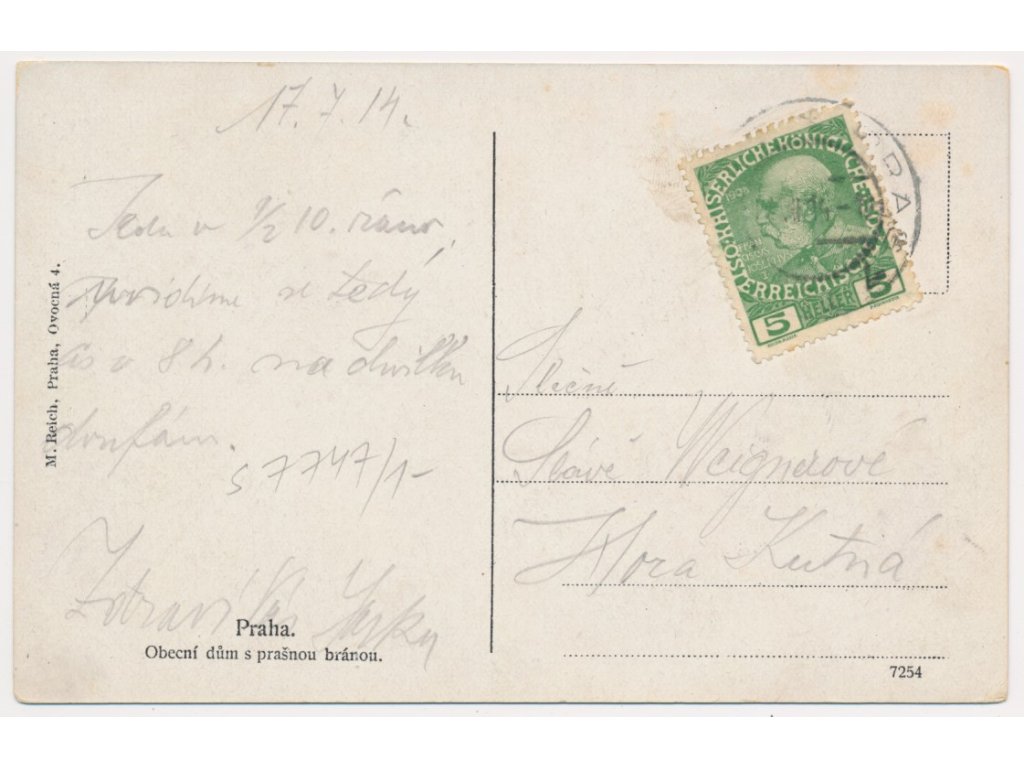 17. 7. 14.
Jedu v ½ 10. ráno,
uvidíme se tedy
as v 8 h. na chvilku
doufám.
s 7747/1-
Zdraví Vás
M. Reich, Praha, Ovocná 4.
Praha.
Obecní dům s prašnou bránou.
KAISERLICHE KÖNIGLICHE
ÖSTERREICHISCHE
1908
5 HELLER 5
Slečně
Slávě Weignerové
Hora Kutná
7254